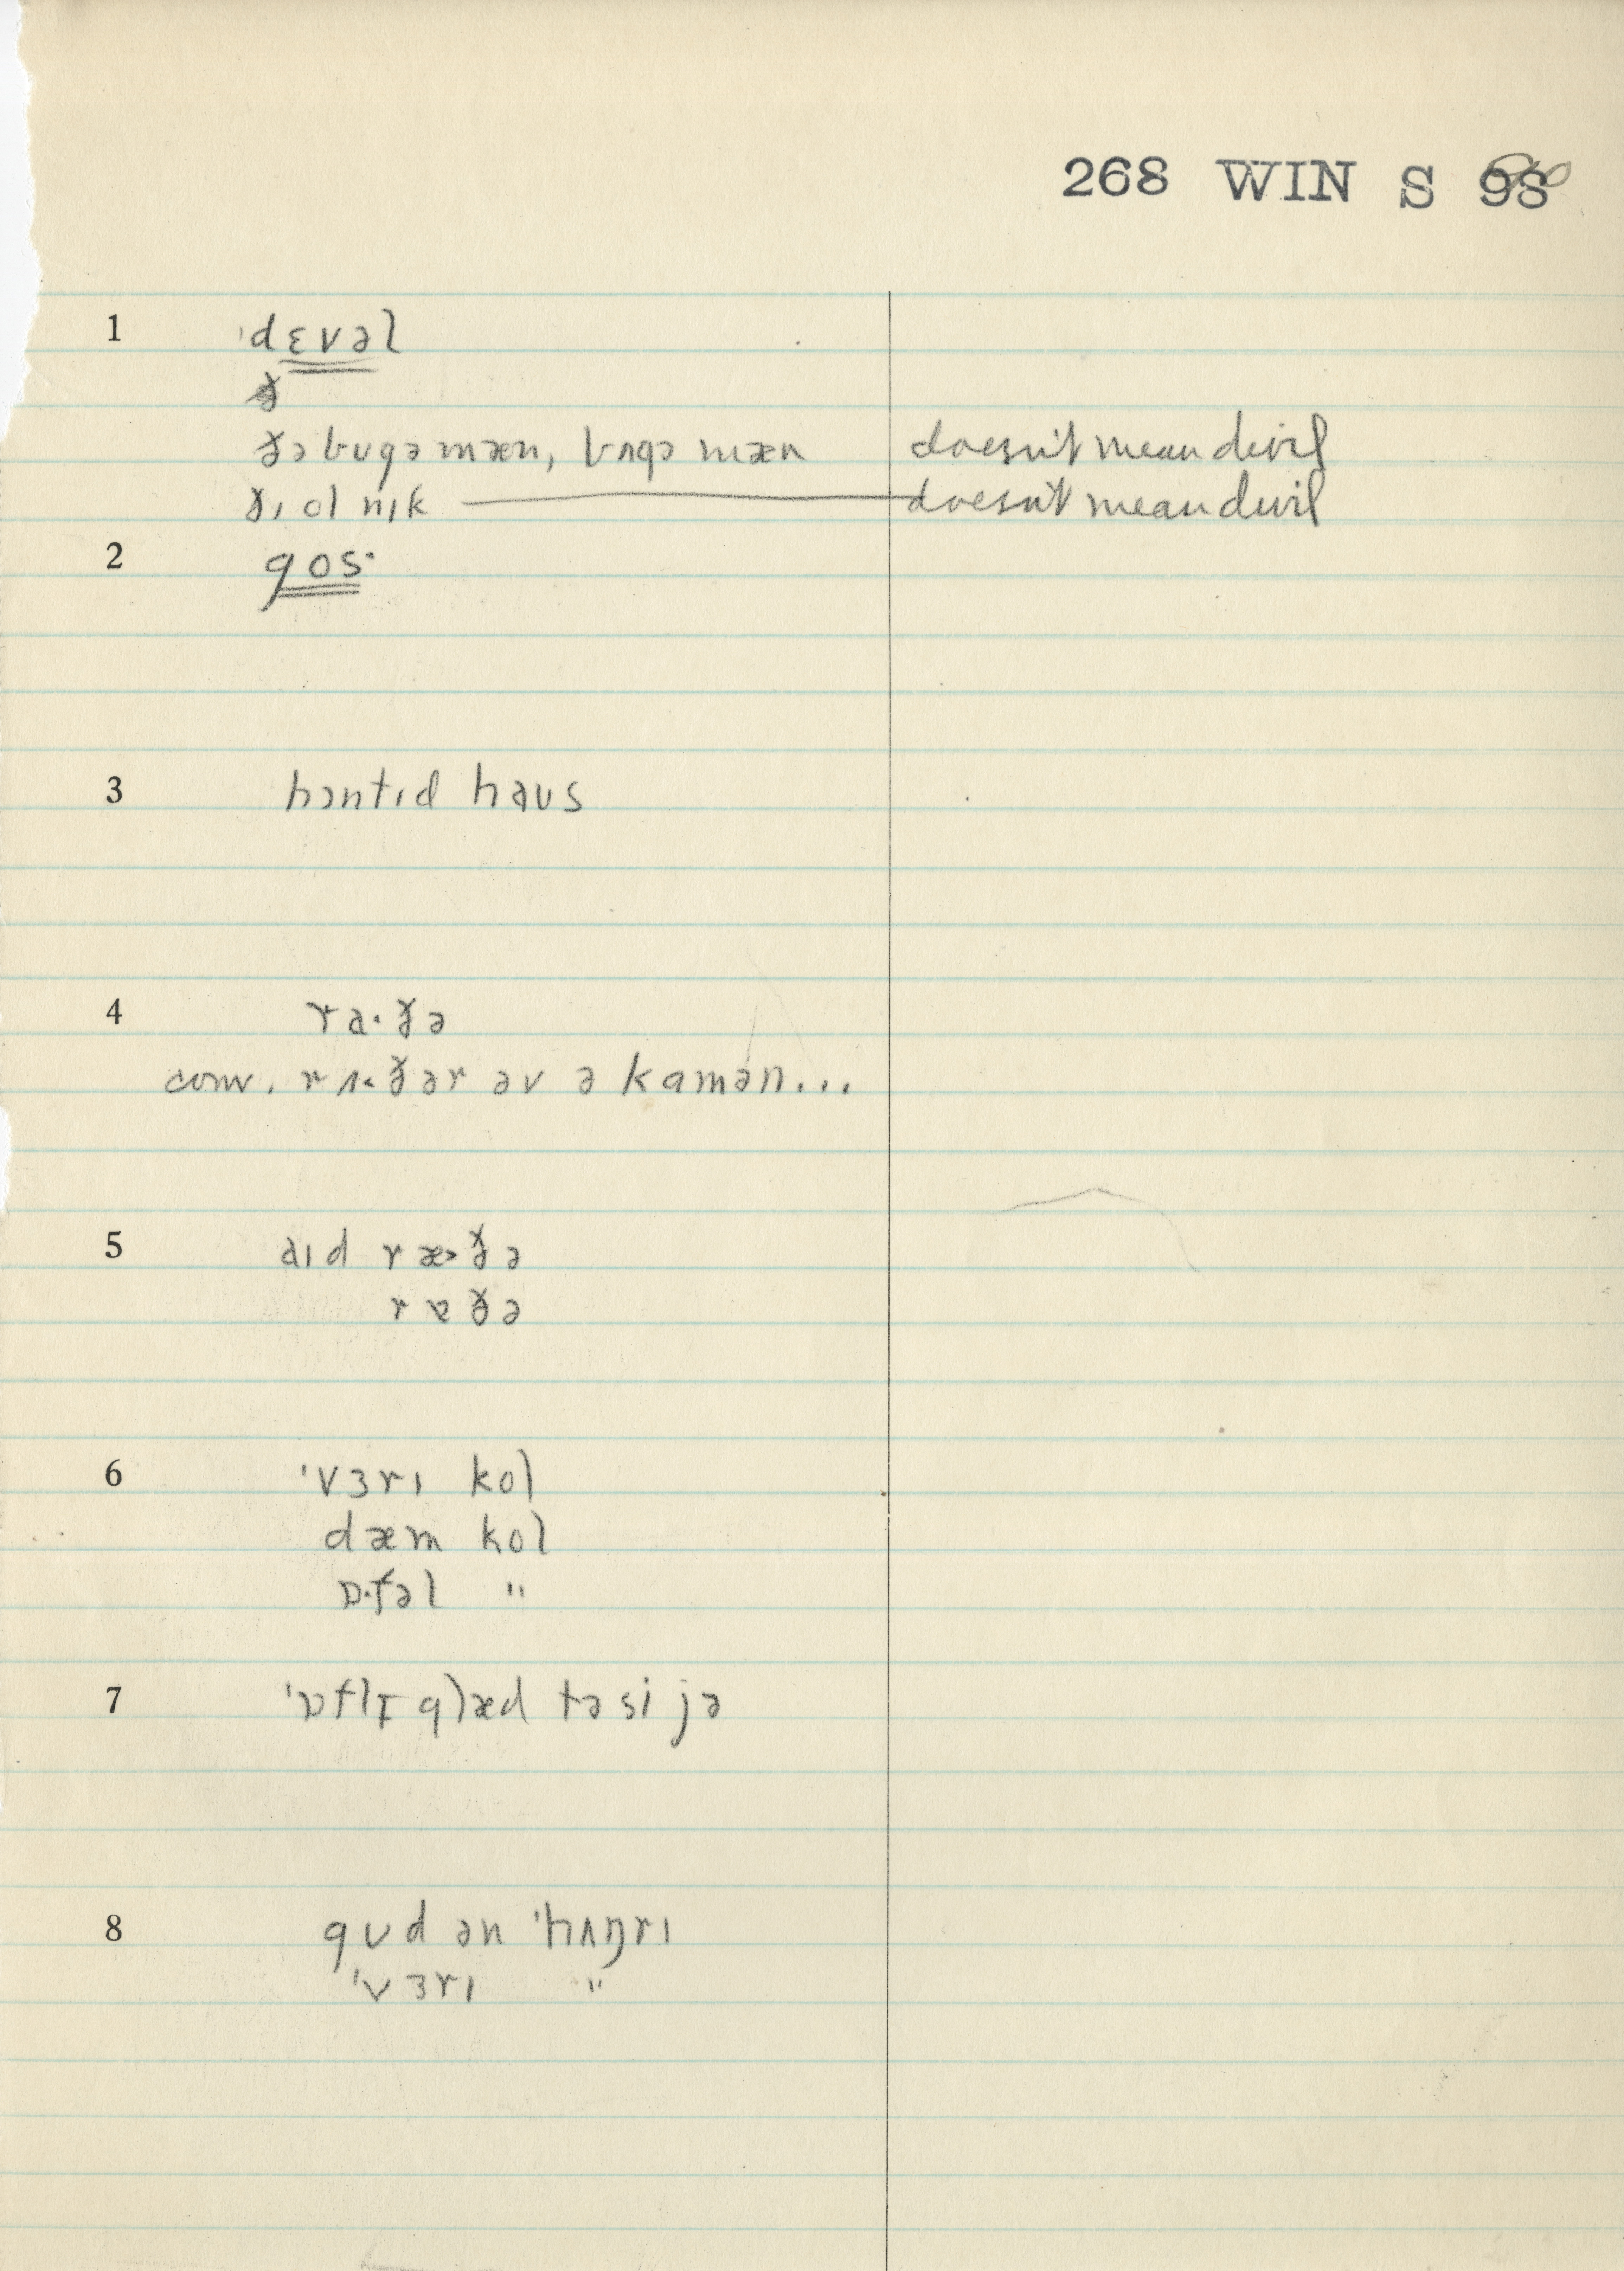 268 WIN S 98
1 ˈdɛvəl
ðə bʊgə mæn, bʌgə mæn doesn't mean devil
ðɪ ol nɪk — doesn't mean devil
2 gos·
3 hɔntɪd haʊs
4 ra·ðə
conv. rʌ˂ðər əv ə kamən...
5 aɪd ræ˃ðə
rɐðə
6 ˈvɜrɪ kol
dæm kol
ɒ·fəl "
7 ˈɒflɪ glæd tə si jə
8 gʊd ən ˈhʌŋrɪ
ˈvɜrɪ "